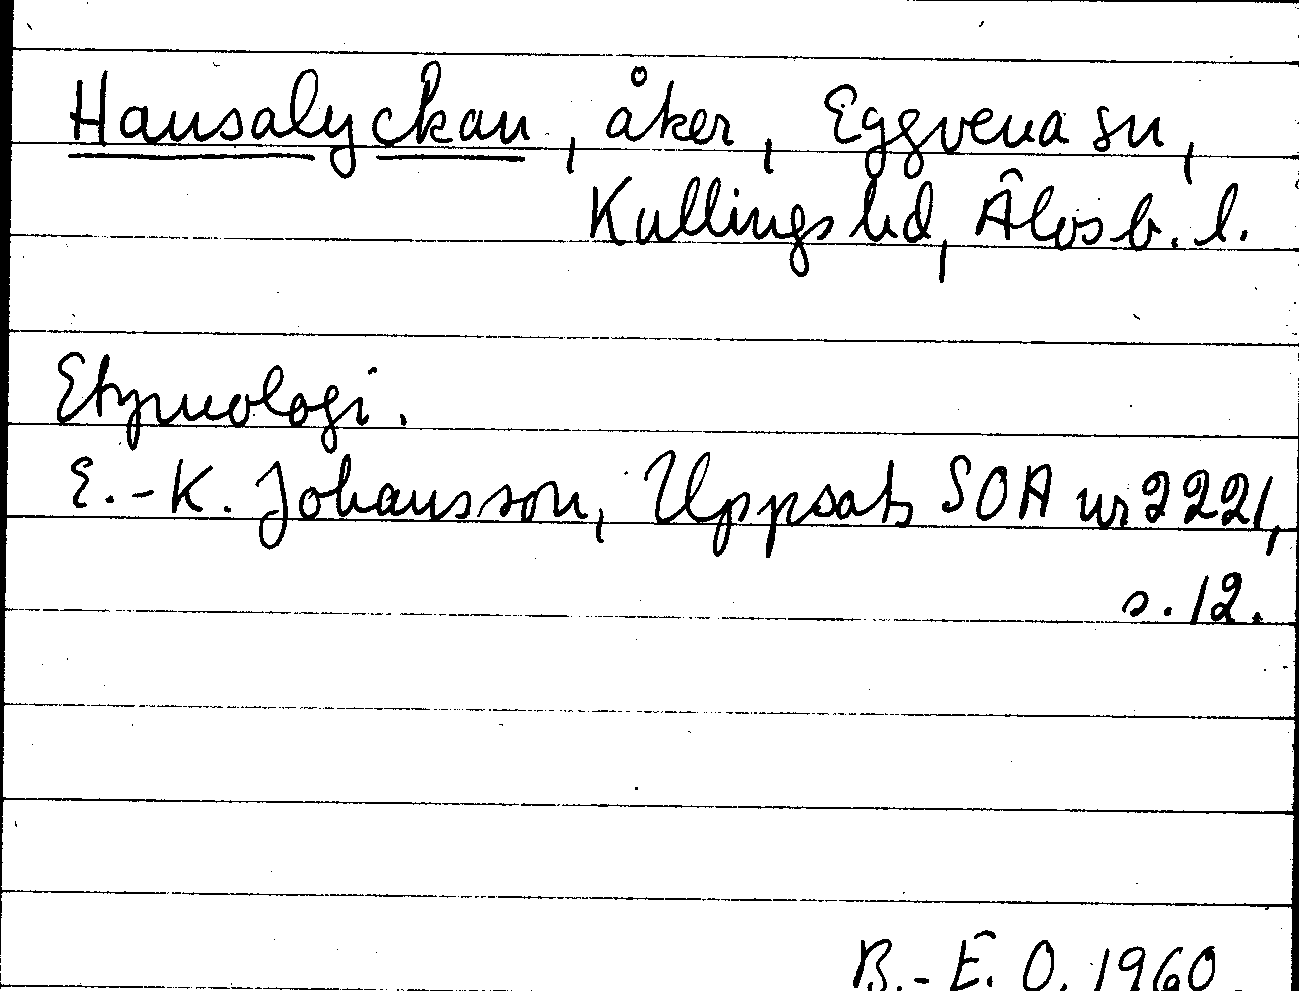 Hansalyckan, åker, Eggvena sn,
Kullings hd, Älvsb. l.
Etymologi.
E.-K. Johansson, Uppsats SOA nr 2221,
s. 12.
B.-E. O. 1960.